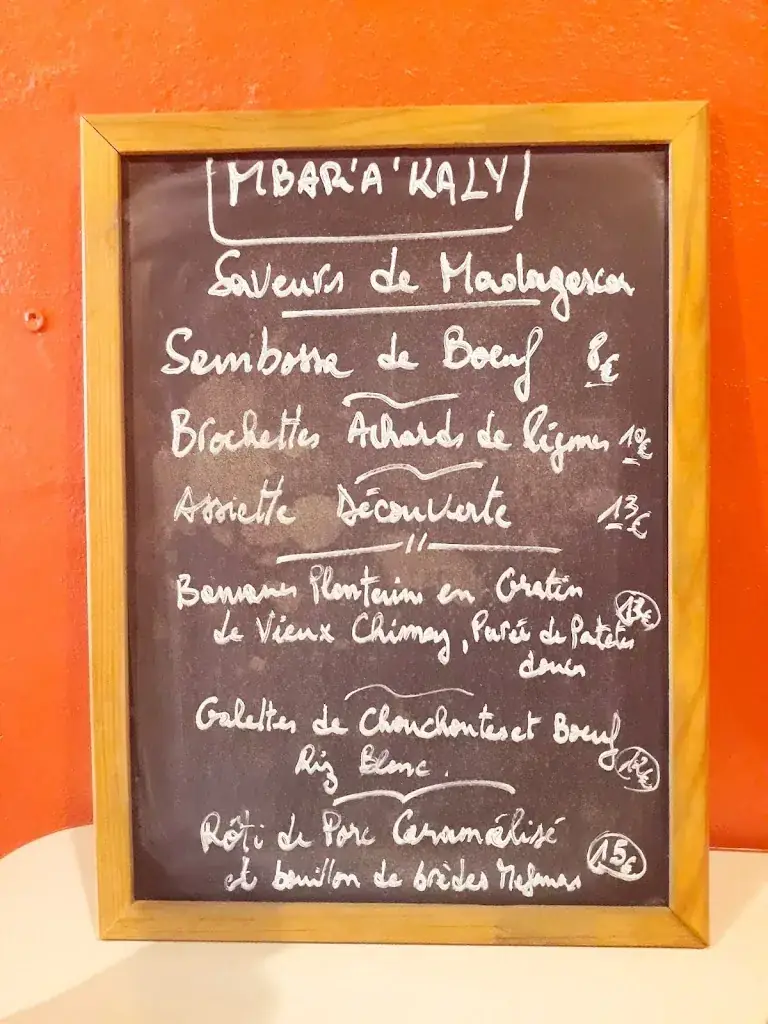 MBAR'A'KALY
Saveurs de Madagascar
Sambossa de Boeuf 8€
Brochettes Achards de légumes 10€
Assiette Découverte 13€
Bananes Plantains en Gratin 13€
de Vieux Chimay, Purée de Patates
douces
Galettes de Chouchoutes et Boeuf
Riz Blanc.
Rôti de Porc Caramélisé 15€
et bouillon de brèdes Mafanas